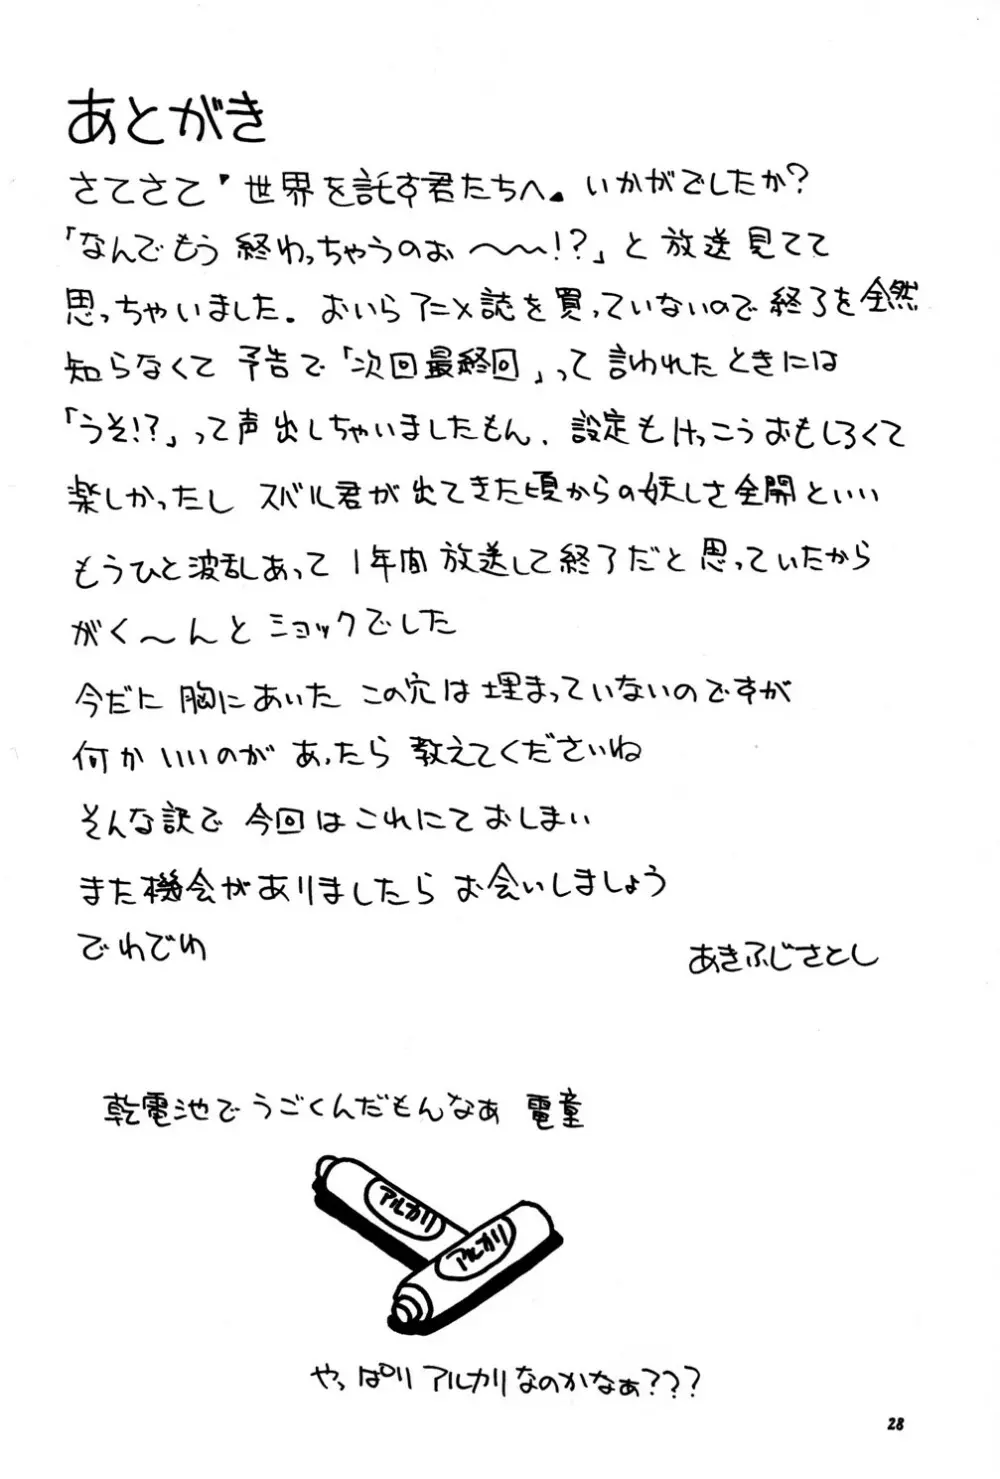 あとがき
さてさて『世界を託す君たちへ』いかがでしたか?
「なんでもう終わっちゃうのぉ〜〜!?」と放送見てて
思っちゃいました。おいらアニメ誌を買っていないので終了を全然
知らなくて予告で「次回最終回」って言われたときには
「うそ!?」って声出しちゃいましたもん、設定もけっこうおもしろくて
楽しかったしスバル君が出てきた頃からの妖しさ全開といい
もうひと波乱あって1年間放送して終了だと思っていたから
がく〜んとショックでした
今だに胸にあいたこの穴は埋まっていないのですが
何かいいのがあったら教えてくださいね
そんな訳で今回はこれにておしまい
また機会がありましたらお会いしましょう
でわでわ
あきふじさとし
乾電池でうごくんだもんなぁ 電童
アルカリ
アルカリ
やっぱりアルカリなのかなぁ???
28